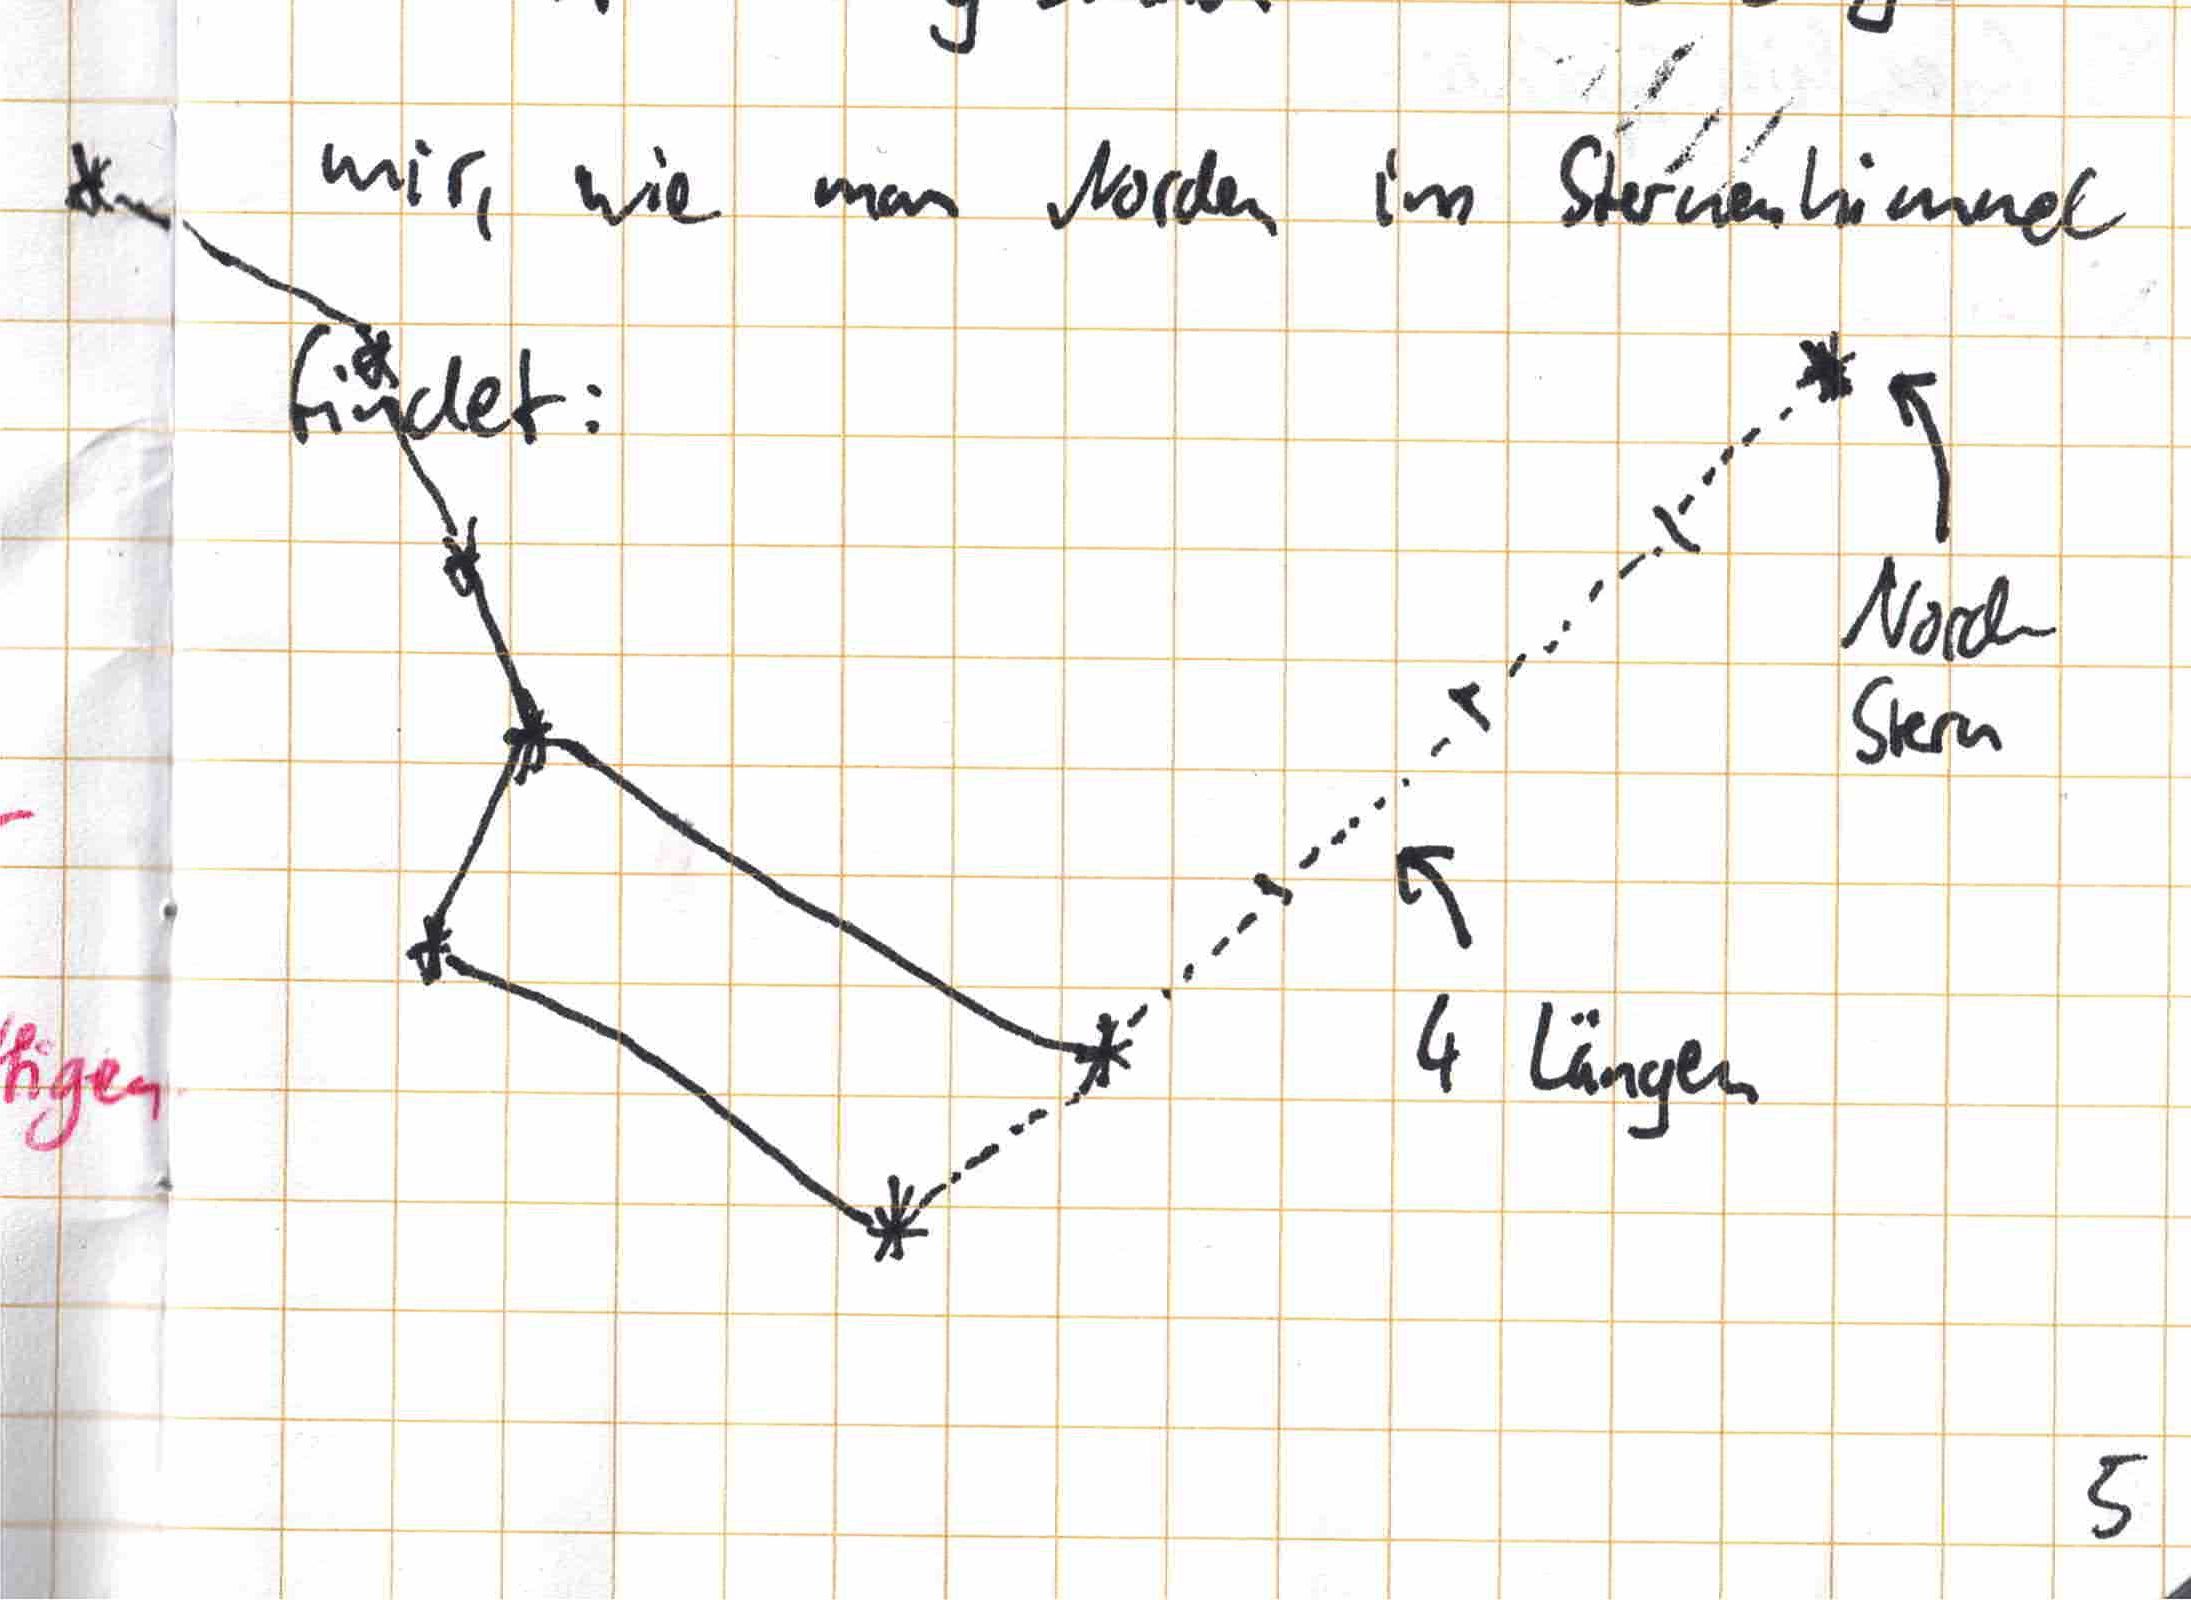 mir, wie man Norden im Sternenhimmel
findet:
Nord
Stern
4 Längen
5